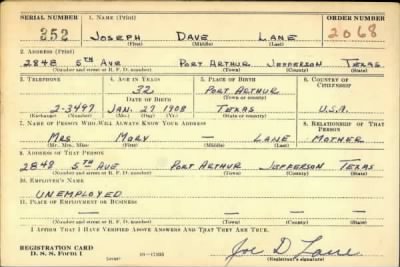 SERIAL NUMBER 1. NAME (Print) ORDER NUMBER
352 JOSEPH DAVE LANE 2068
(First) (Middle) (Last)
2. ADDRESS (Print)
2848 5TH AVE PORT ARTHUR JEFFERSON TEXAS
(Number and street or R. F. D. number) (Town or county) (County) (State)
3. TELEPHONE 4. AGE IN YEARS 5. PLACE OF BIRTH 6. COUNTRY OF CITIZENSHIP
32 PORT ARTHUR
DATE OF BIRTH (Town or county)
2-3497 JAN. 27 1908 TEXAS U.S.A.
(Exchange) (Number) (Mo.) (Day) (Yr.) (State or country)
7. NAME OF PERSON WHO WILL ALWAYS KNOW YOUR ADDRESS 8. RELATIONSHIP OF THAT PERSON
MRS MARY — LANE MOTHER
(Mr., Mrs., Miss) (First) (Middle) (Last)
9. ADDRESS OF THAT PERSON
2848 5TH AVE PORT ARTHUR JEFFERSON TEXAS
(Number and street or R. F. D. number) (Town or county) (County) (State)
10. EMPLOYER'S NAME
UNEMPLOYED
11. PLACE OF EMPLOYMENT OR BUSINESS
(Number and street or R. F. D. number) (Town) (County) (State)
I AFFIRM THAT I HAVE VERIFIED ABOVE ANSWERS AND THAT THEY ARE TRUE.
REGISTRATION CARD
D. S. S. Form 1 (over) Joe D Lane
(Registrant's signature)